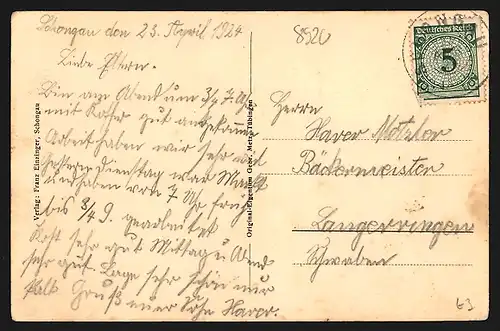 Schongau den 23. April 1924
Liebe Eltern.
Bin am Abend um 3/4 7 Uhr
mit Koffer gut angekomm
Arbeit haben wir sehr viel
gestern Dienstag war Markt
wir haben von 7 Uhr früh
bis 3/4 9. gearbeitet
Kost sehr gut Mittag u Abend
sehr gut. Lage sehr schön nur
kalt. Gruß euer Sohn Xaver.
Verlag: Franz Einsinger, Schongau
Original-Eigentum Gebr. Metz, Tübingen
8920
Deutsches Reich
5
Herrn
Xaver Motzler
Bäckermeister
Langerringen
Schwaben
63